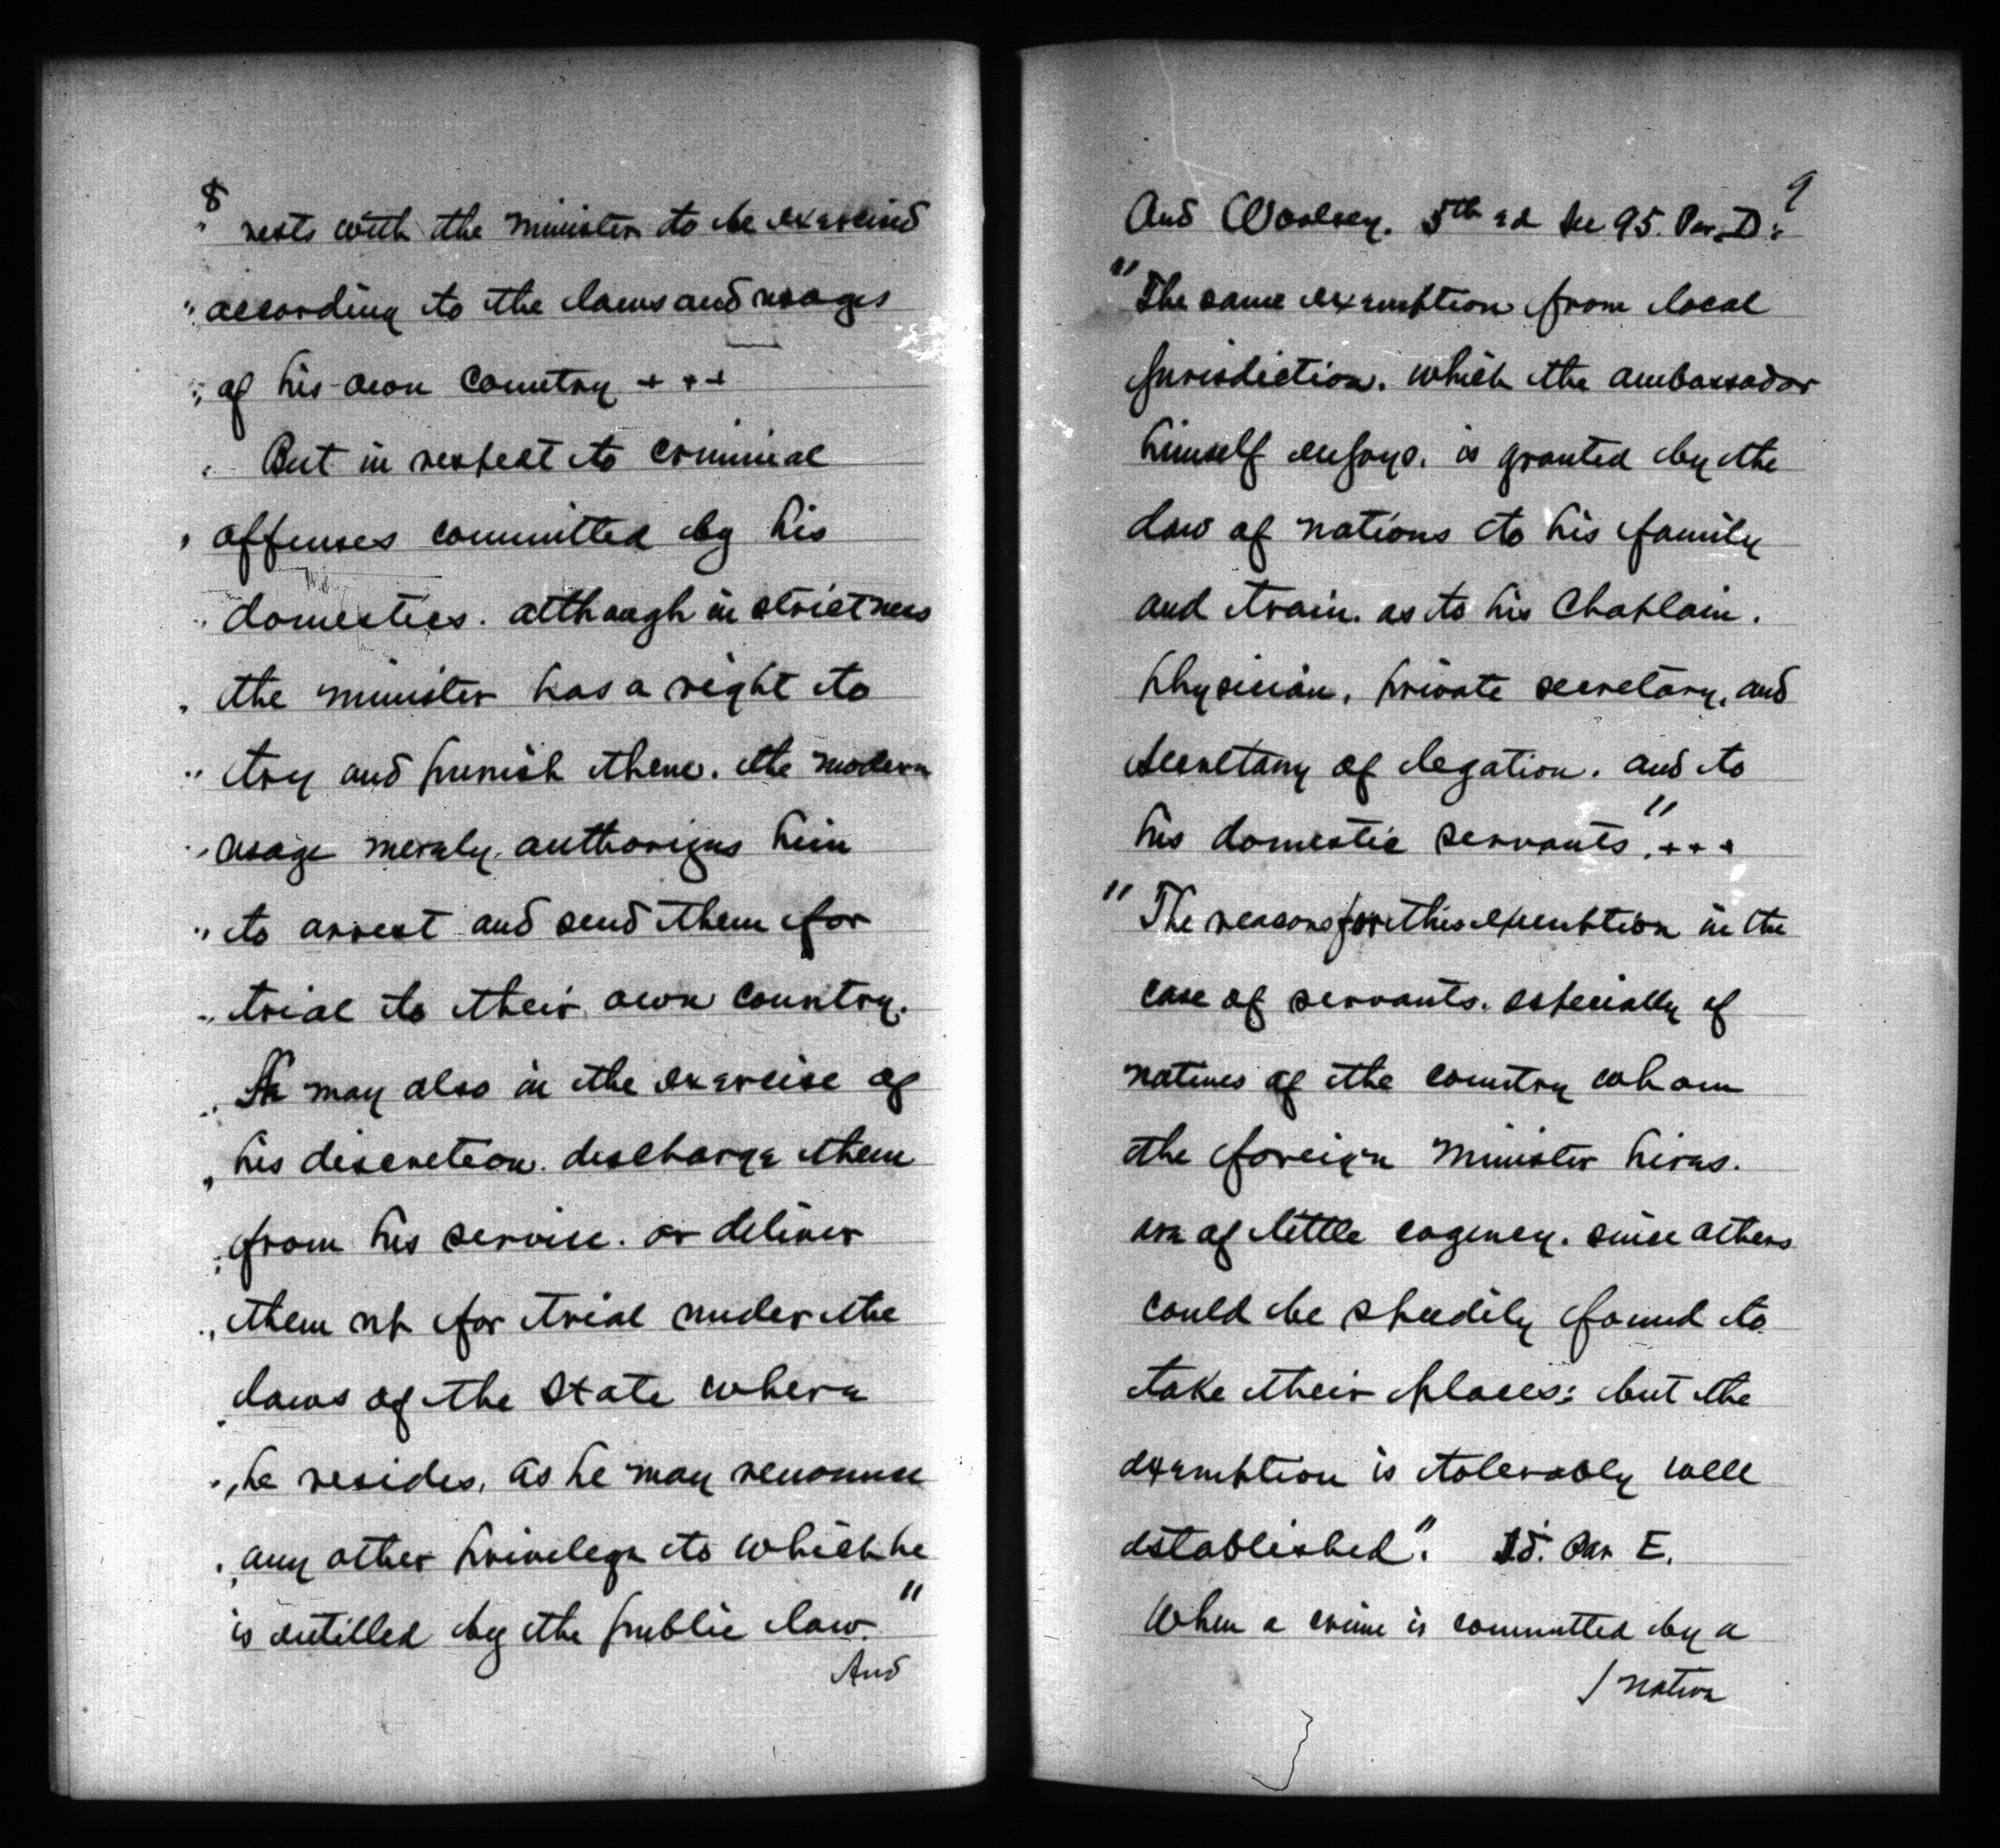 8
" rests with the minister to be exercised
" according to the laws and usages
" of his own country + + +
" But in respect to criminal
" offenses committed by his
" domestics. although in strictness
" the minister has a right to
" try and punish them. the modern
" usage merely authorizes him
" to arrest and send them for
" trial to their own country.
" He may also in the exercise of
" his discretion. discharge them
" from his service. or deliver
" them up for trial under the
" laws of the State where
" he resides, as he may renounce
" any other privilege to which he
is entitled by the public law."
And
9
And Woolsey. 5th ed Sec 95. Par. D:
"The same exemption from local
jurisdiction. which the ambassador
himself enjoys. is granted by the
law of nations to his family
and train. as to his Chaplain.
physician, private secretary, and
secretary of legation. and to
his domestic servants". + + +
"The reasons for this exemption in the
case of servants. especially of
natives of the country whom
the foreign minister hires.
are of little cogency. since others
could be speedily found to
take their places; but the
exemption is tolerably well
established". Id. Par E.
When a crime is committed by a
/ native